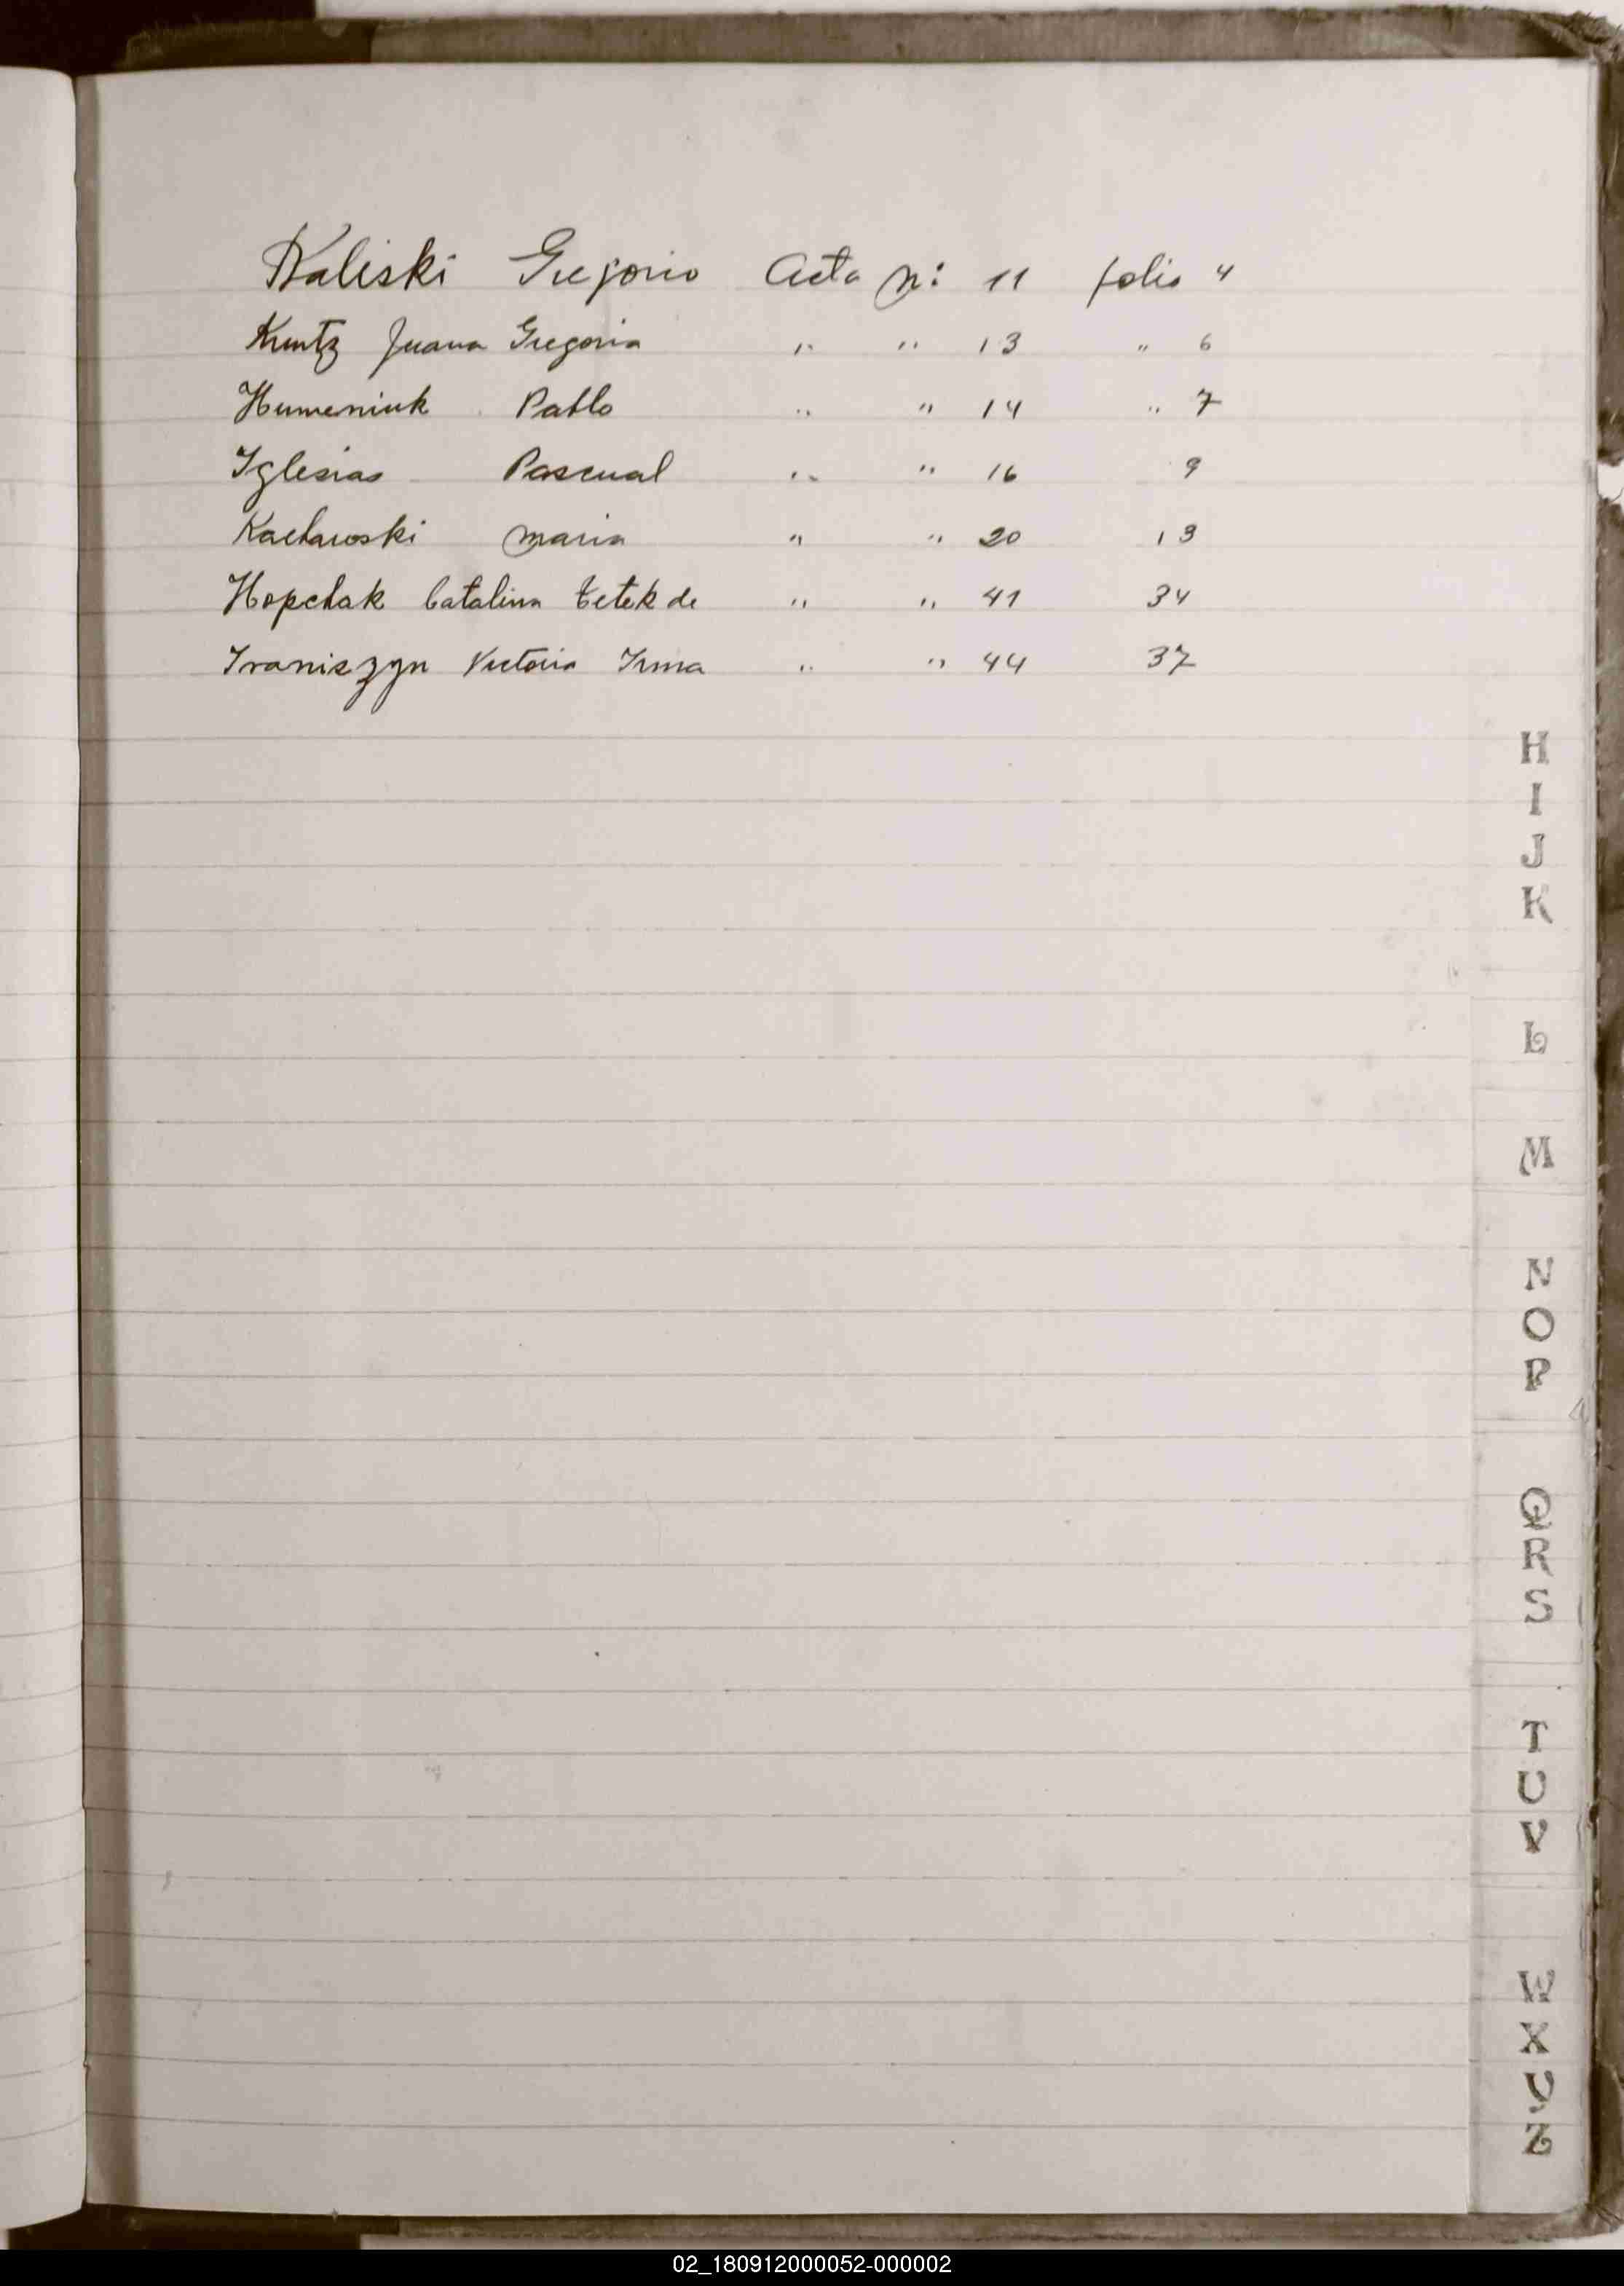 Kaliski Gregorio Acta n: 11 folio 4
Kuntz Juana Gregoria " " 13 " 6
Humeniuk Pablo " " 14 " 7
Iglesias Pascual " " 16 9
Kacharoski Maria " " 20 13
Hopchak Catalina Tetek de " " 41 34
Iraniszyn Victoria Irma " " 44 37
H
I
J
K
L
M
N
O
P
Q
R
S
T
U
V
W
X
Y
Z
02_180912000052-000002